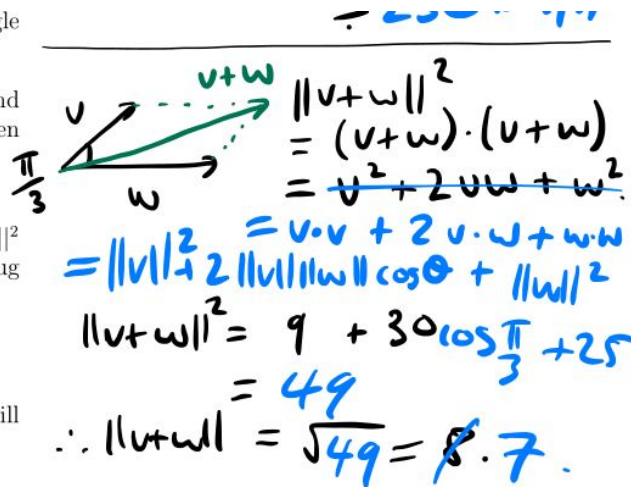 gle
nd
en
||²
ug
ill
v+w
v
π/3
w
||v+w||²
= (v+w)·(v+w)
= v² + 2vw + w².
= v·v + 2 v·w + w·w
= ||v||² + 2 ||v|| ||w|| cos θ + ||w||²
||v+w||² = 9 + 30 cos π/3 + 25
= 49
∴ ||v+w|| = √49 = 8. 7.